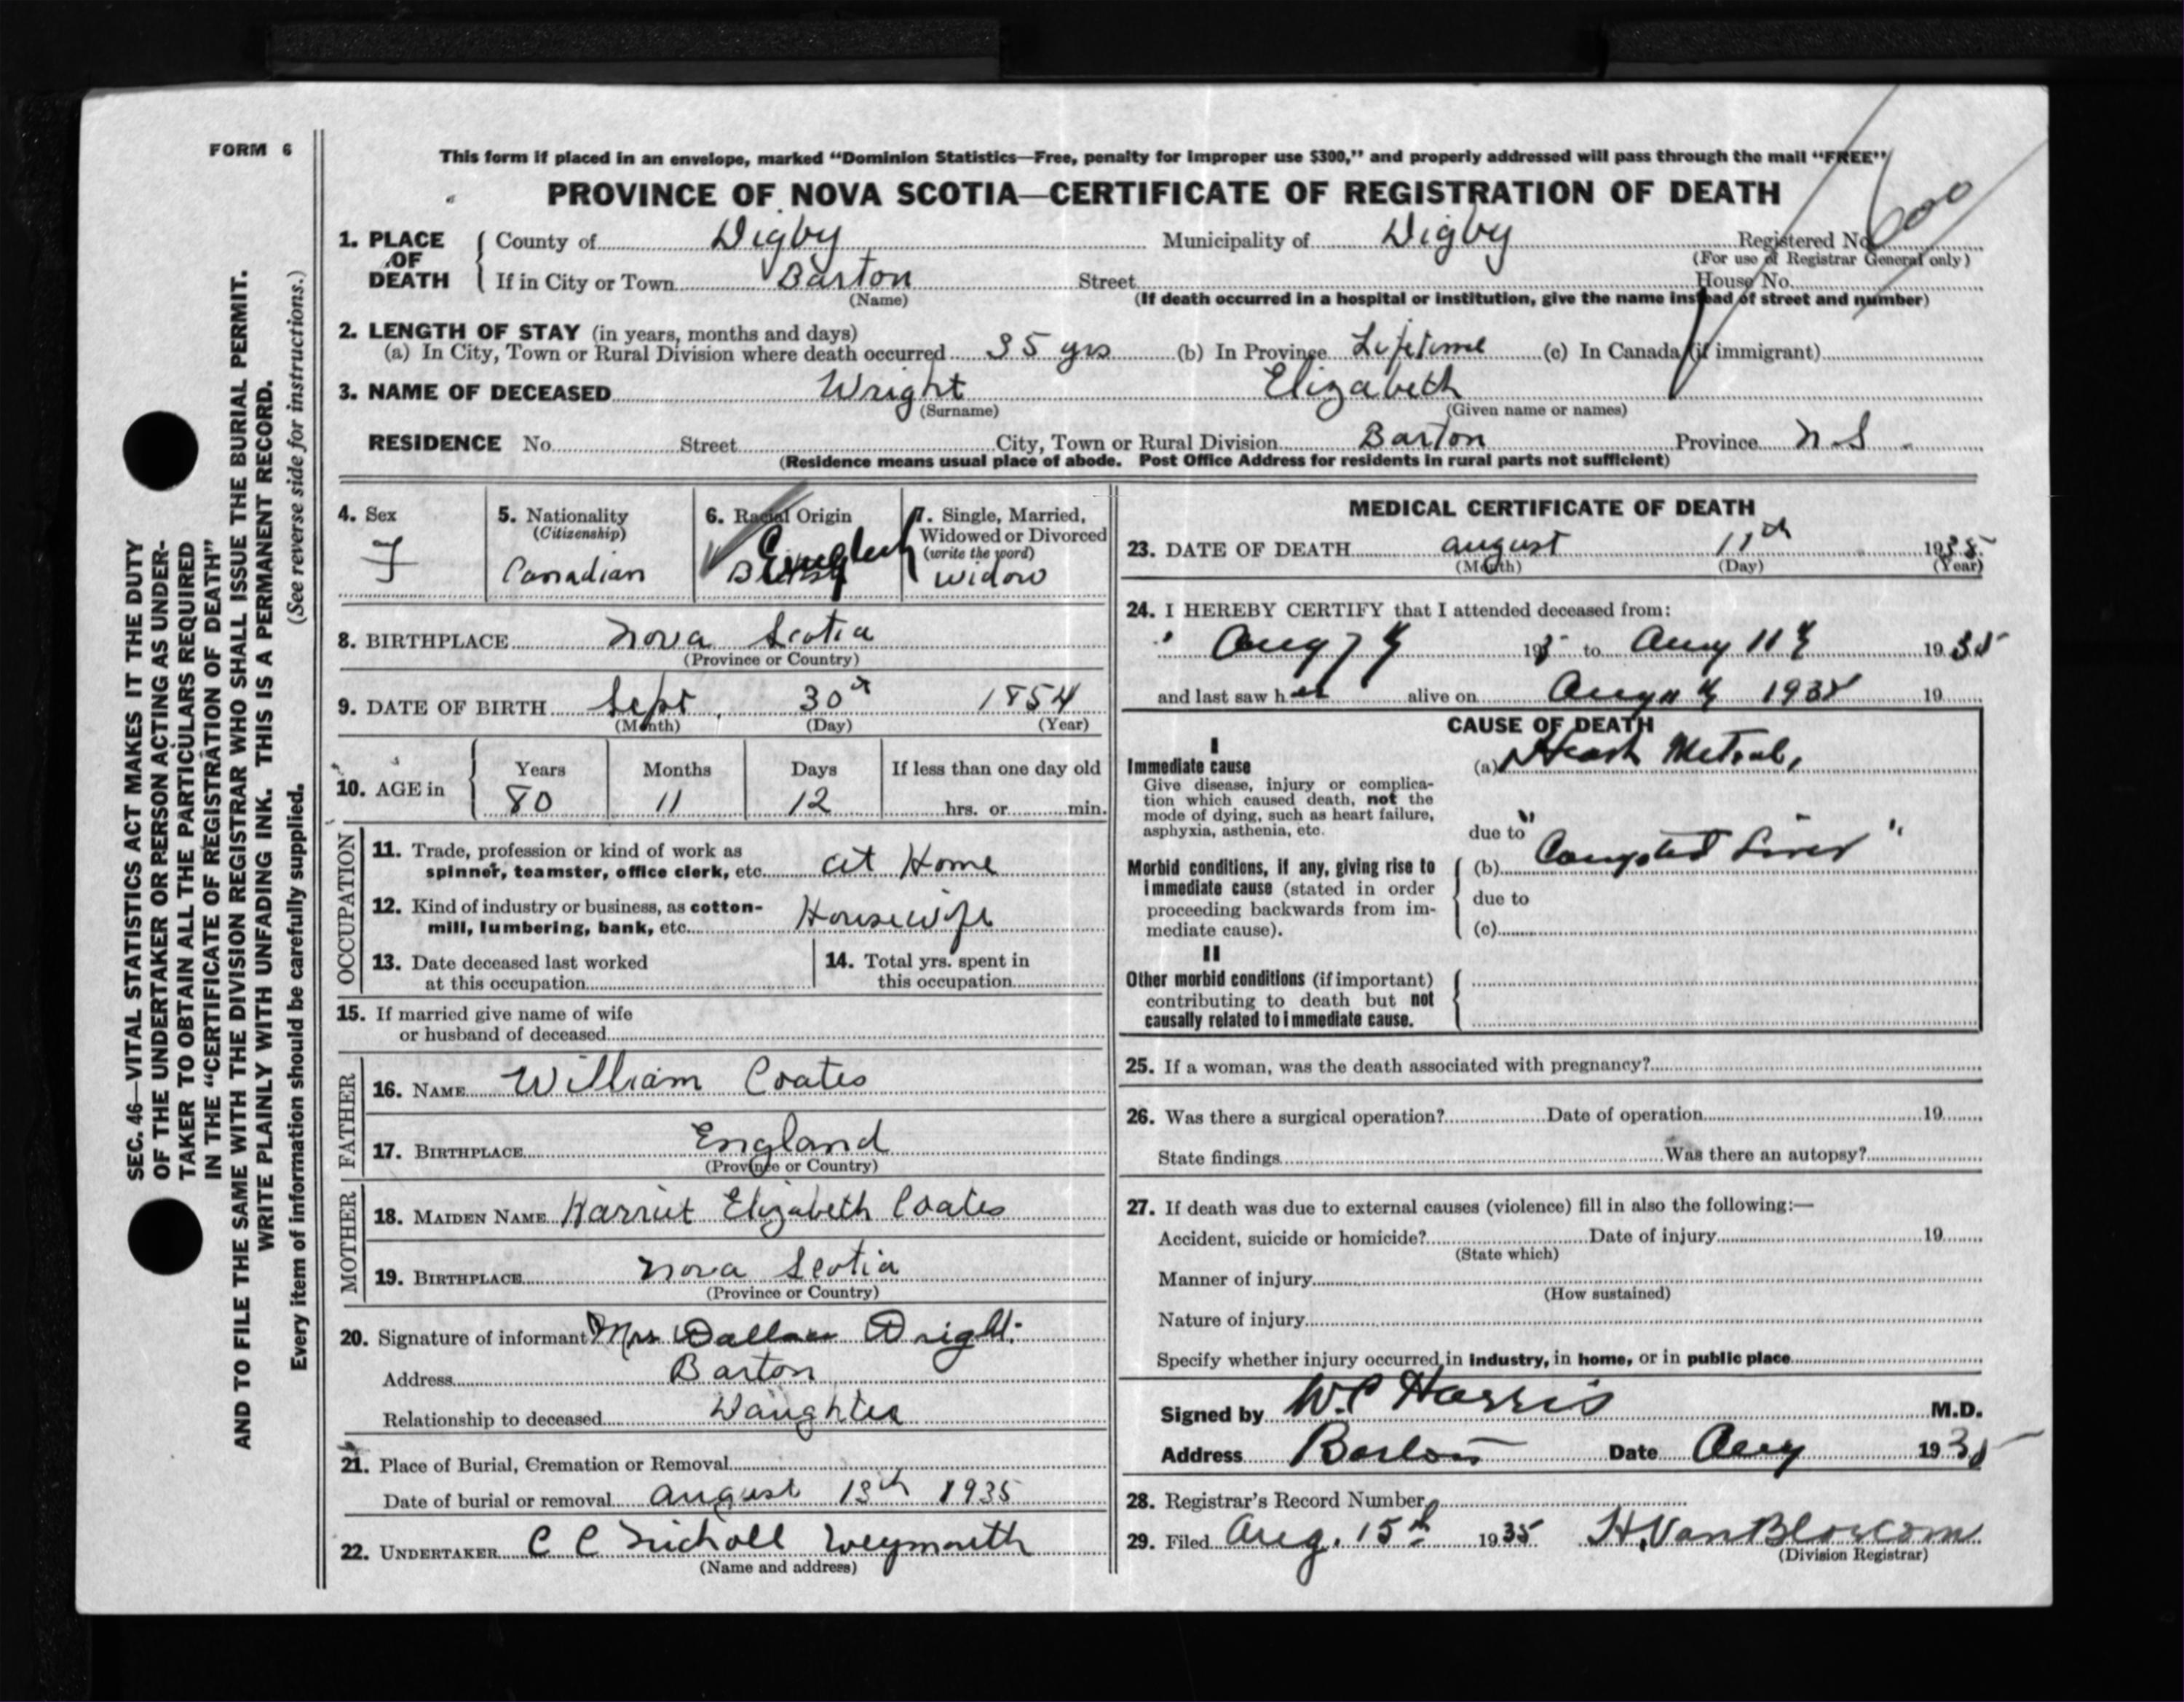 FORM 6
This form if placed in an envelope, marked “Dominion Statistics—Free, penalty for improper use $300,” and properly addressed will pass through the mail “FREE”
PROVINCE OF NOVA SCOTIA—CERTIFICATE OF REGISTRATION OF DEATH
1. PLACE OF DEATH { County of Digby Municipality of Digby Registered No. 600
(For use of Registrar General only)
If in City or Town Barton Street House No.
(Name) (If death occurred in a hospital or institution, give the name instead of street and number)
2. LENGTH OF STAY (in years, months and days)
(a) In City, Town or Rural Division where death occurred 35 yrs (b) In Province Lifetime (c) In Canada (if immigrant)
3. NAME OF DECEASED Wright Elizabeth
(Surname) (Given name or names)
RESIDENCE No. Street City, Town or Rural Division Barton Province N.S.
(Residence means usual place of abode. Post Office Address for residents in rural parts not sufficient)
4. Sex
F
5. Nationality
(Citizenship)
Canadian
6. Racial Origin
English
7. Single, Married,
Widowed or Divorced
(write the word)
Widow
8. BIRTHPLACE Nova Scotia
(Province or Country)
9. DATE OF BIRTH Sept. 30th 1854
(Month) (Day) (Year)
10. AGE in { Years Months Days If less than one day old
80 11 12 hrs. or min.
OCCUPATION
11. Trade, profession or kind of work as
spinner, teamster, office clerk, etc. at Home
12. Kind of industry or business, as cotton-
mill, lumbering, bank, etc. Housewife
13. Date deceased last worked
at this occupation
14. Total yrs. spent in
this occupation
15. If married give name of wife
or husband of deceased
FATHER
16. NAME William Coates
17. BIRTHPLACE England
(Province or Country)
MOTHER
18. MAIDEN NAME Harriet Elizabeth Coates
19. BIRTHPLACE Nova Scotia
(Province or Country)
20. Signature of informant Mrs Wallace Wright
Address Barton
Relationship to deceased Daughter
21. Place of Burial, Cremation or Removal
Date of burial or removal August 13th 1935
22. UNDERTAKER C C Nicholl Weymouth
(Name and address)
MEDICAL CERTIFICATE OF DEATH
23. DATE OF DEATH August 11th 1935
(Month) (Day) (Year)
24. I HEREBY CERTIFY that I attended deceased from:
Aug 7th 193 to Aug 11th 1935
and last saw her alive on Aug 11th 1935 19
CAUSE OF DEATH
I
Immediate cause
Give disease, injury or complica-
tion which caused death, not the
mode of dying, such as heart failure,
asphyxia, asthenia, etc.
(a) Mitral,
due to
Morbid conditions, if any, giving rise to
immediate cause (stated in order
proceeding backwards from im-
mediate cause).
(b) Liver "
due to
(c)
II
Other morbid conditions (if important)
contributing to death but not
causally related to immediate cause.
25. If a woman, was the death associated with pregnancy?
26. Was there a surgical operation? Date of operation 19
State findings Was there an autopsy?
27. If death was due to external causes (violence) fill in also the following:—
Accident, suicide or homicide? Date of injury 19
(State which)
Manner of injury
(How sustained)
Nature of injury
Specify whether injury occurred in industry, in home, or in public place
Signed by W.C Harris M.D.
Address Barton Date Aug 1935
28. Registrar's Record Number
29. Filed Aug. 15th 1935 H. VanBlarcom
(Division Registrar)
SEC. 46—VITAL STATISTICS ACT MAKES IT THE DUTY
OF THE UNDERTAKER OR PERSON ACTING AS UNDER-
TAKER TO OBTAIN ALL THE PARTICULARS REQUIRED
IN THE “CERTIFICATE OF REGISTRATION OF DEATH”
AND TO FILE THE SAME WITH THE DIVISION REGISTRAR WHO SHALL ISSUE THE BURIAL PERMIT.
WRITE PLAINLY WITH UNFADING INK. THIS IS A PERMANENT RECORD.
Every item of information should be carefully supplied. (See reverse side for instructions.)